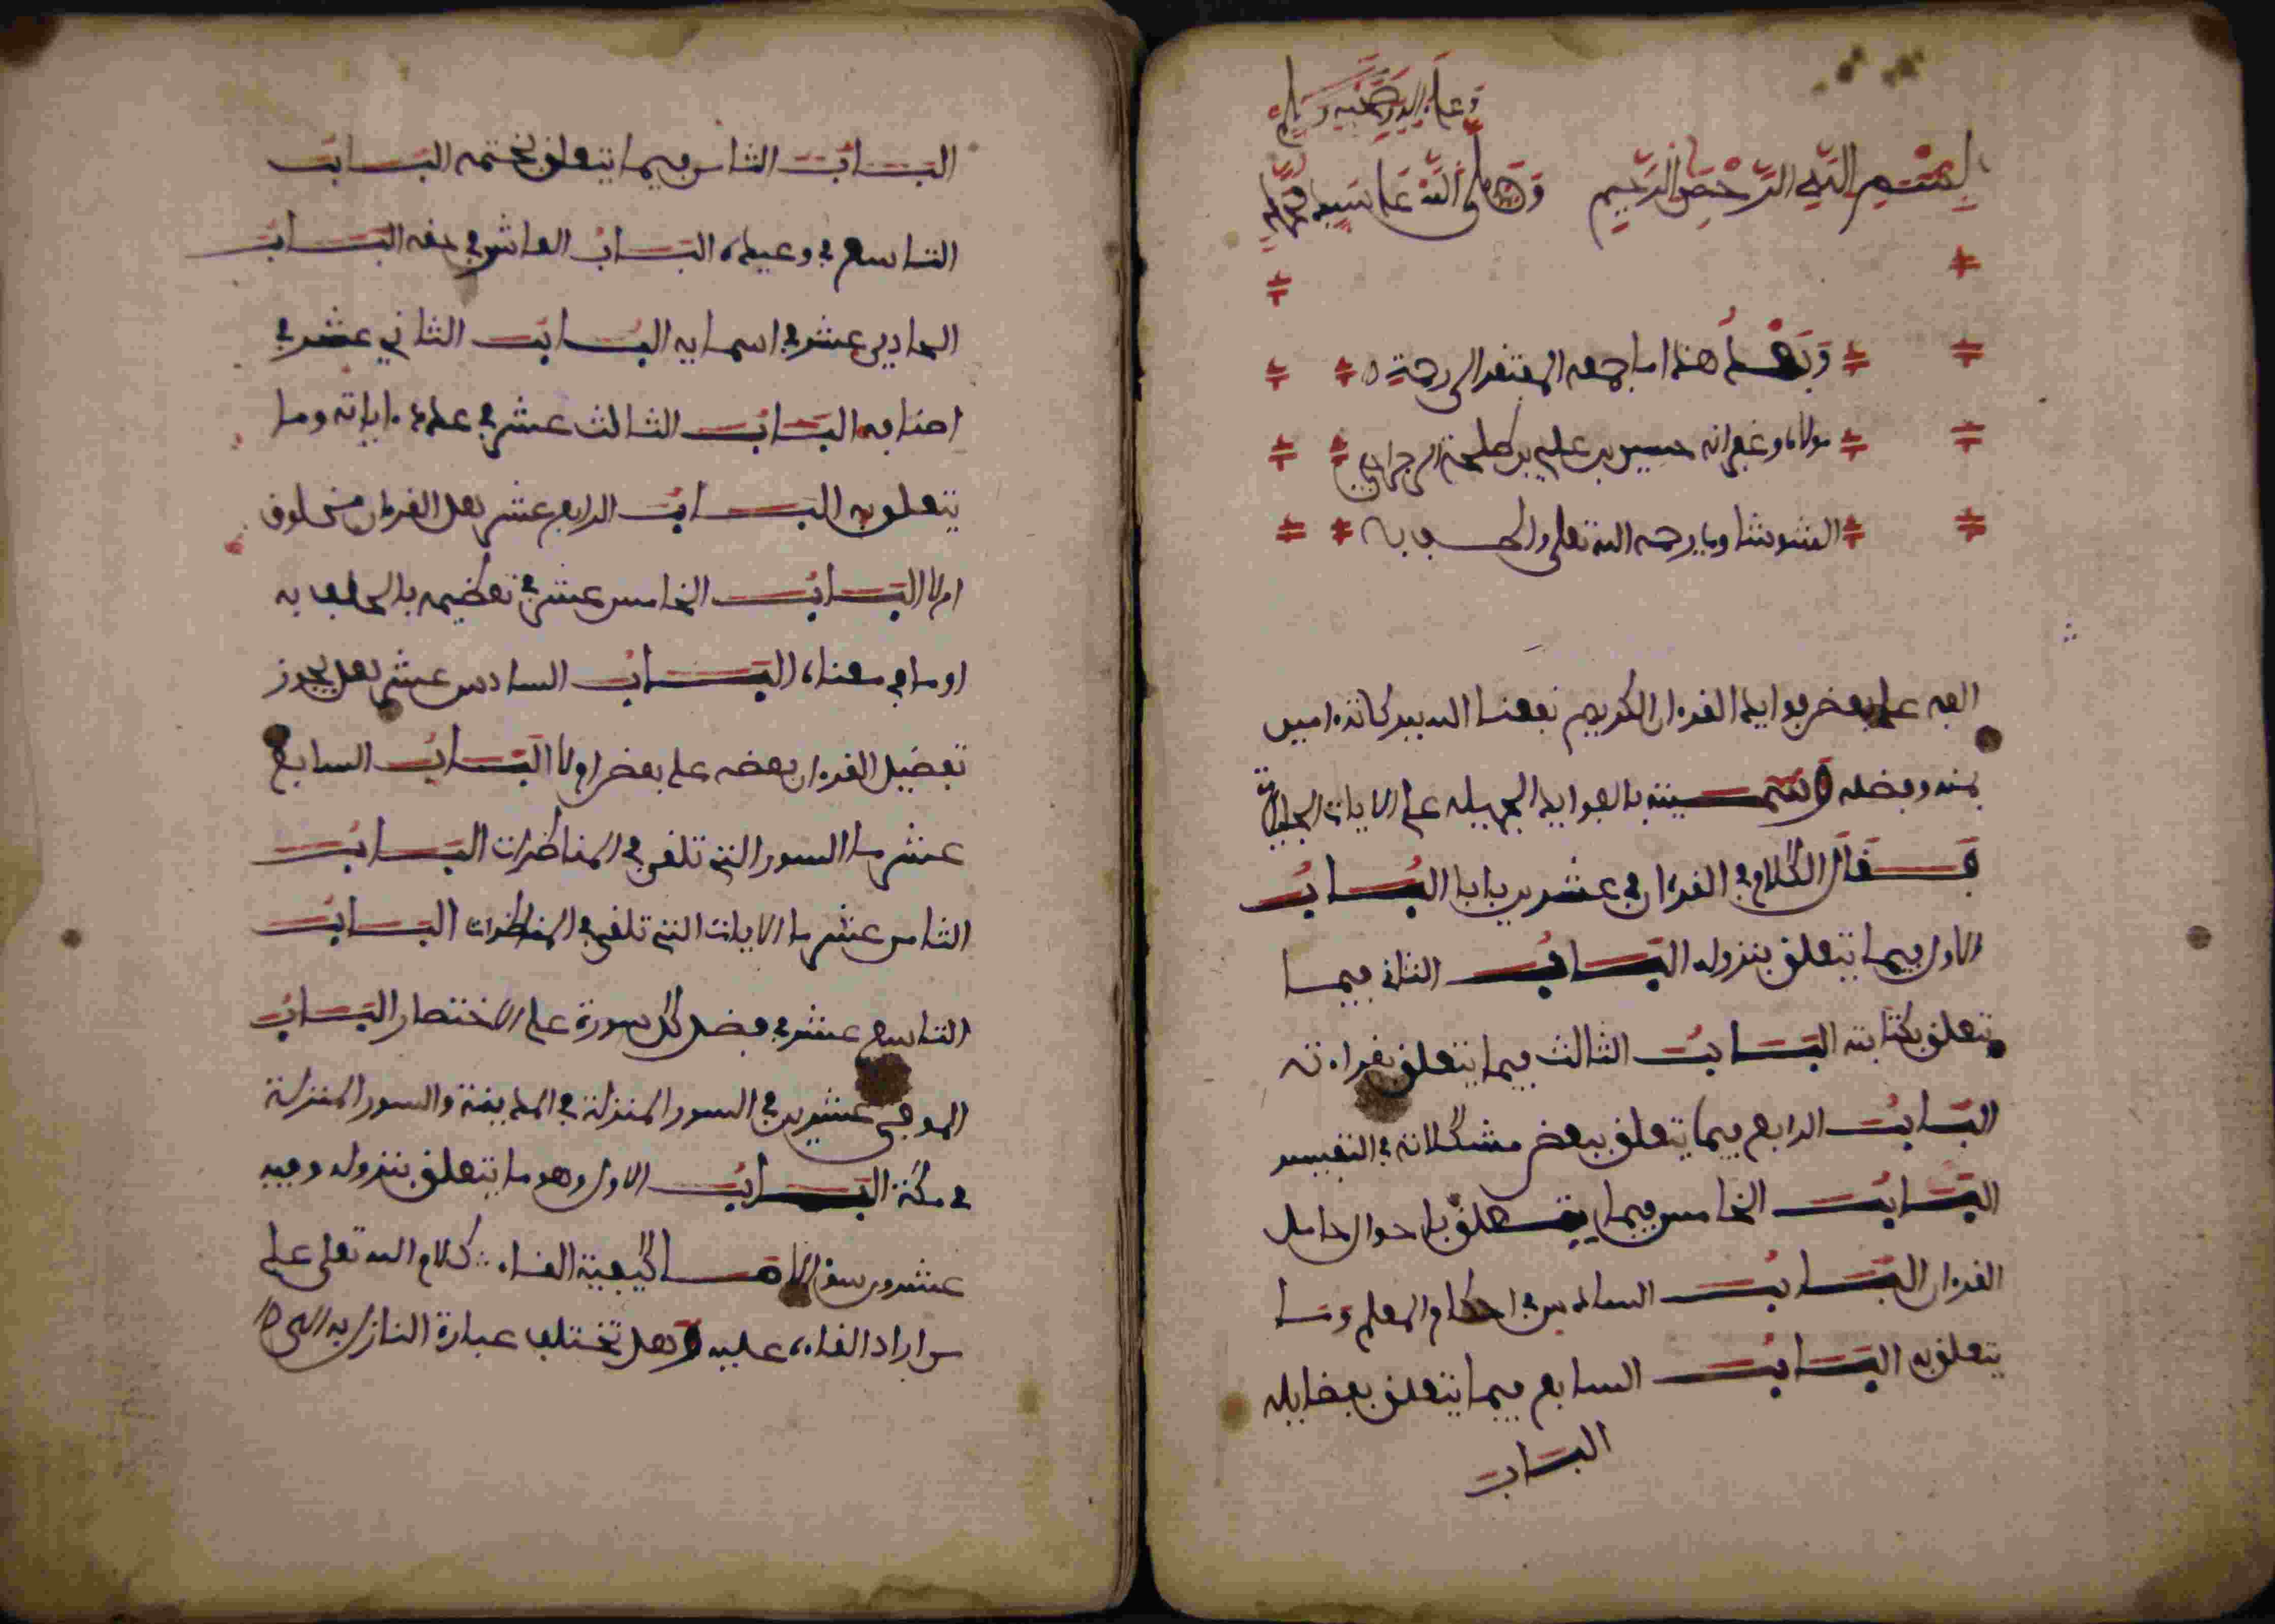 وعلى اله وصحبه وسلم
بسم الله الرحمن الرحيم وصلى الله على سيدنا محمد
وبعد هذا ما جمعه المفتقر الى رحمة
مولاه وغفرانه حسين بن علي بن طلحة الرجراجي
الشوشاوي رحمه الله تعلى
الفه على بعض فوايد القرءان الكريم نفعنا الله ببركاته ءامين
بمنه وفضله وسميته بالفوايد الجميلة على الايات الجليلة
فقال الكلام في القرءان في عشرين بابا الباب
الاول فيما يتعلق بنزوله الباب الثاني فيما
يتعلق بكتابته الباب الثالث فيما يتعلق بقراءته
الباب الرابع فيما يتعلق ببعض مشكلاته في التفسير
الباب الخامس فيما يتعلق باحوال حامل
القرءان الباب السادس في احكام المعلم وما
يتعلق به الباب السابع فيما يتعلق بفضايله
الباب
الباب الثامن فيما يتعلق بختمه الباب
التاسع في وعيده الباب العاشر في حقه الباب
الحادي عشر في اسمايه الباب الثاني عشر في
اصنافه الباب الثالث عشر في عدد ءاياته وما
يتعلق به الباب الرابع عشر هل القرءان مخلوق
ام لا الباب الخامس عشر في تعظيمه بالحلف به
او ما في معناه الباب السادس عشر هل يجوز
تفضيل القرءان بعضه على بعض او لا الباب السابع
عشر ما السور التي تلقى في المناظرات الباب
الثامن عشر ما الايات التي تلقى في المناظرات الباب
التاسع عشر في فضل كل سورة على الاختصار الباب
الموفي عشرين في السور المنزلة في المدينة والسور المنزلة
في مكة الباب الاول وهو ما يتعلق بنزوله وفيه
عشرون سؤالا ما كيفية القاء كلام الله تعلى على
من اراد القاءه عليه وهل تختلف عبارة النازل به الى